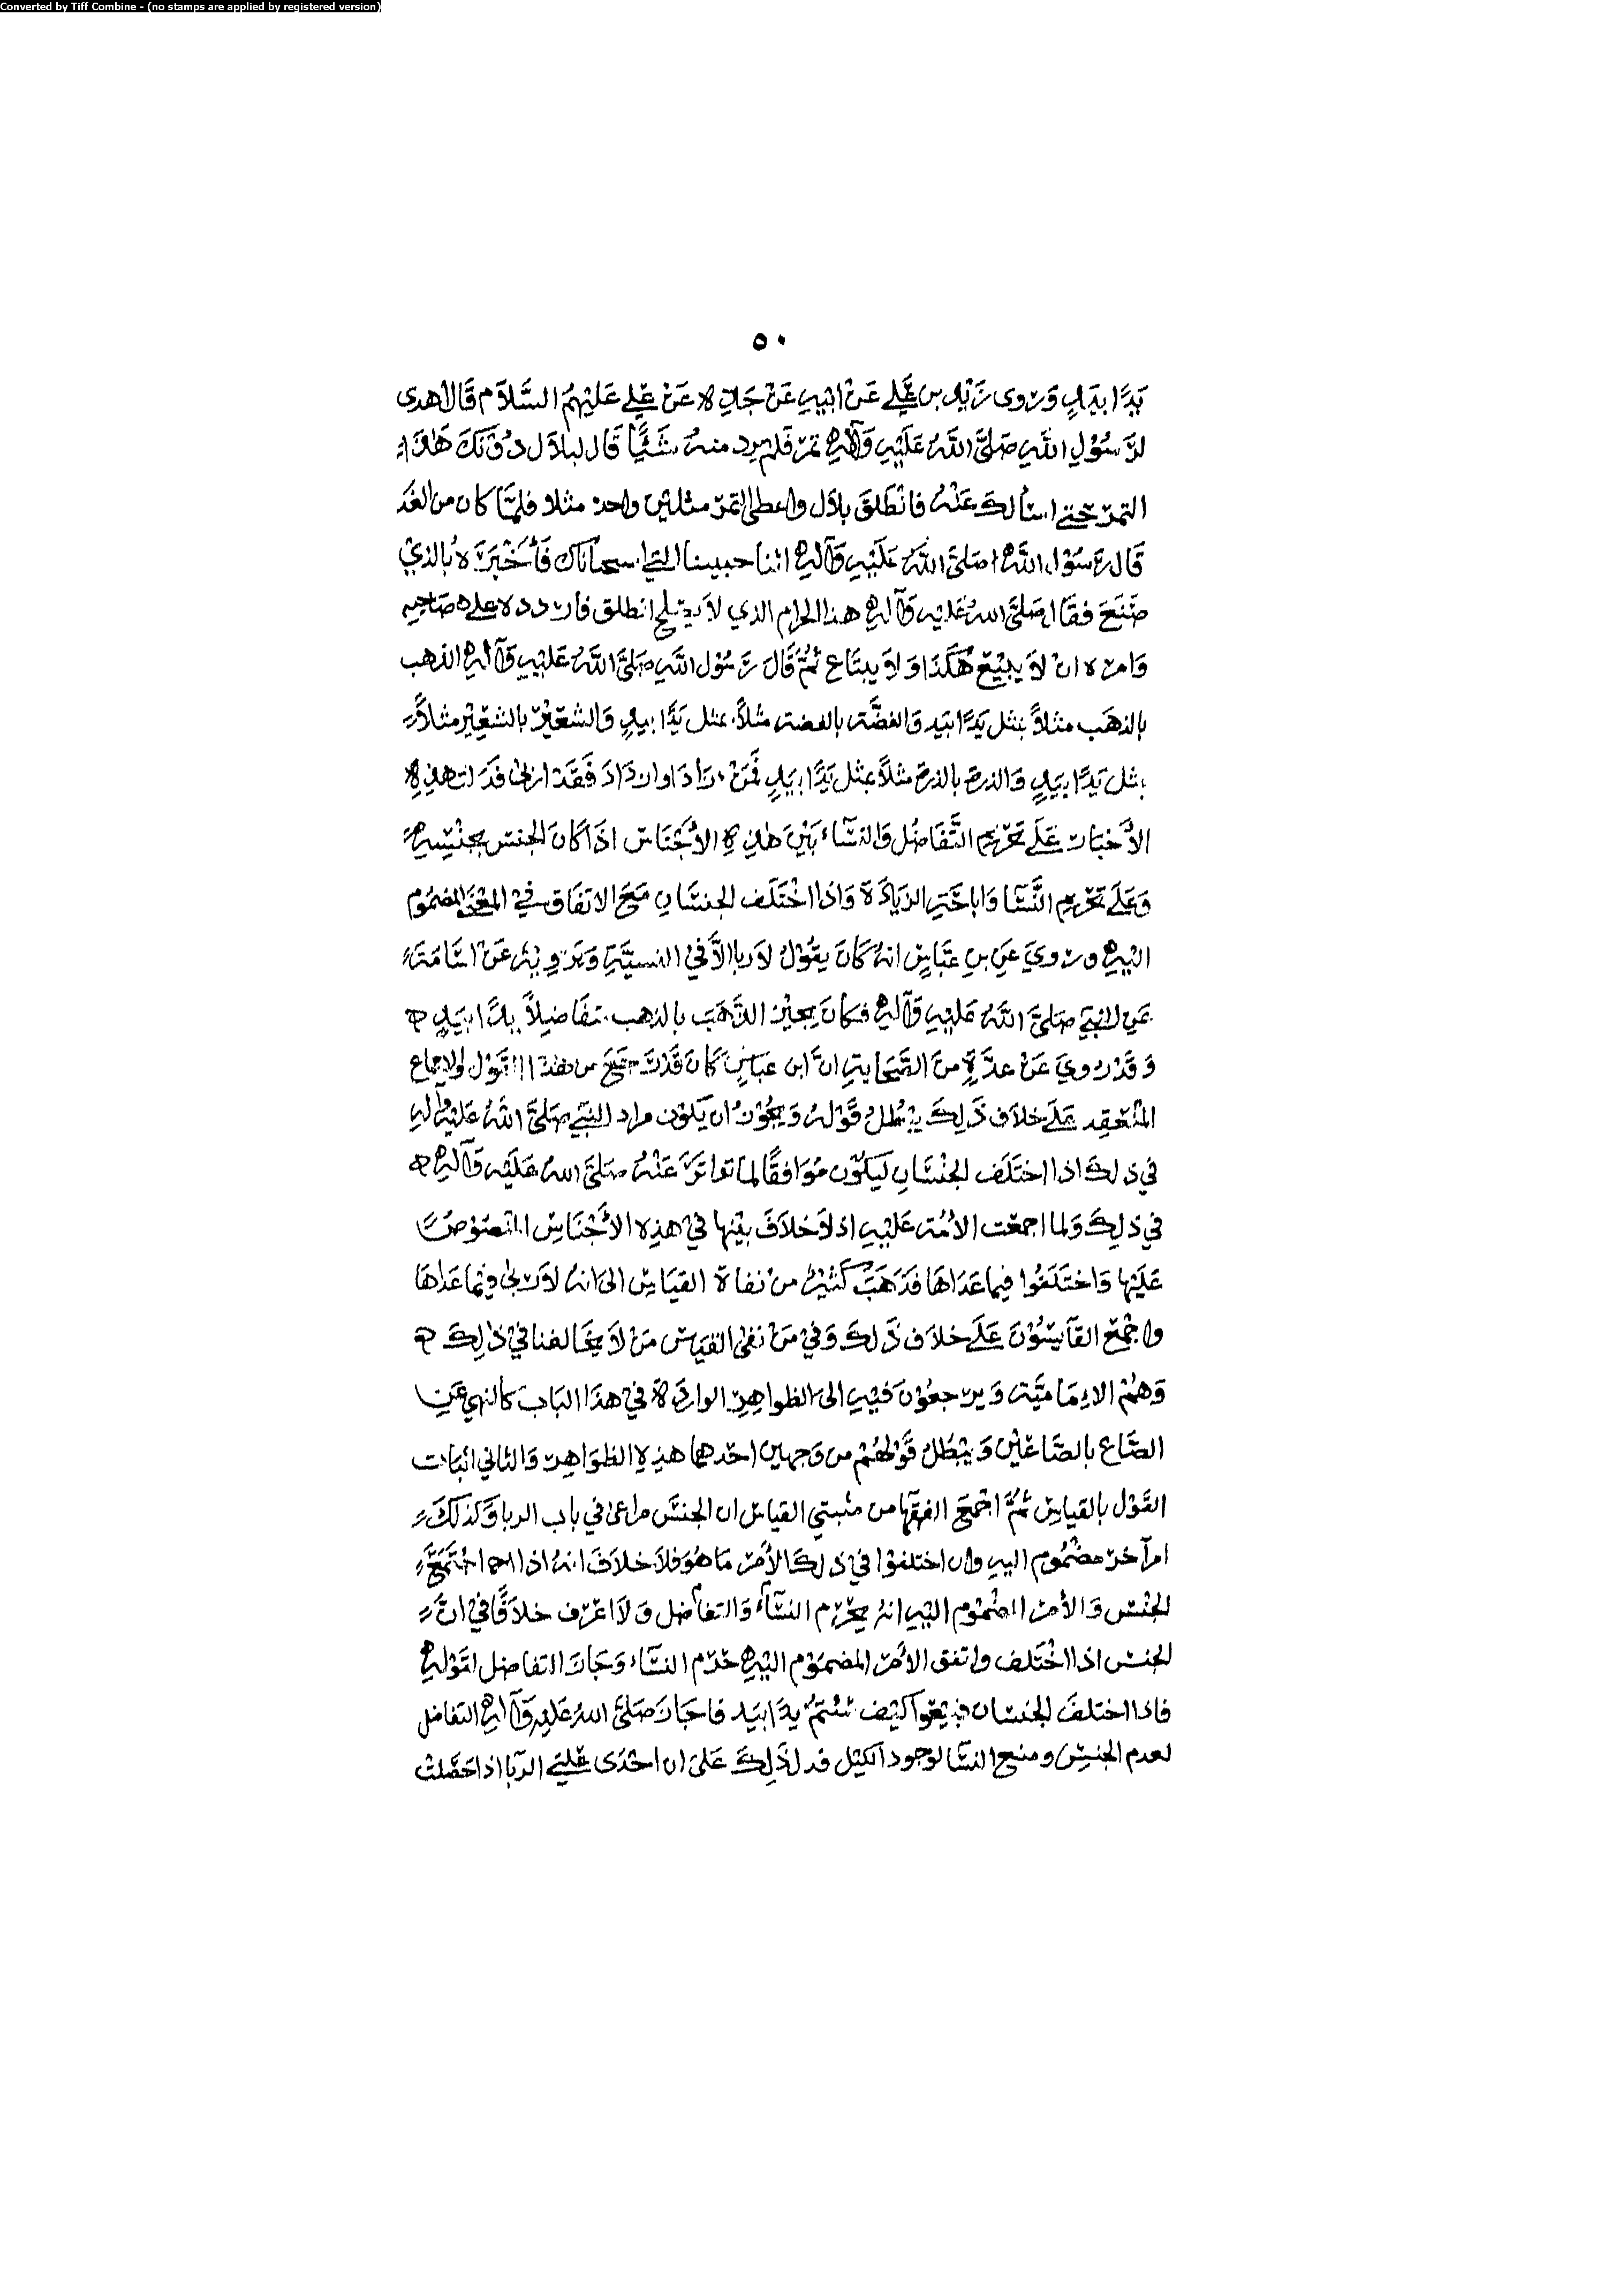 Converted by Tiff Combine - (no stamps are applied by registered version)
٥٠
يَدًا بيَدٍ وَروى زَيْد بن عَلي عَنْ ابيهِ عَنْ جَدِّه عَنْ عَلي عَليْهِمُ السَّلاَم قَال اهدى
لرَسُوْلِ اللهِ صَلَّى اللهُ عَلَيْهِ وَآلِهِ تمر فَلمْ يرد منهُ شَيْئًا قَال لبلاَل دُوْنَكَ هَذَا
التمر حَتى اسألكَ عَنْهُ فانْطَلقَ بلاَل واعطى التمر مثلين واحد مثلا فلمَّا كان من الغَد
قَال رَسُوْل اللهِ صَلَّى اللهُ عَلَيْهِ وَآلِهِ ائتنا حبيسنا التي استخبأناك فَأَخْبَرَهُ بالذيْ
صَنَعَ فقَال صَلَّى اللهُ عَليهِ وَآلِهِ هذا الحرام الذي لاَ يصلح انطلق فاردده على صَاحِبِهِ
وَامره انْ لاَ يبيْع هَكَذَا وَلاَ يبتَاع ثُمَّ قَالَ رَسُوْل اللهِ صَلَّى اللهُ عَلَيْهِ وَآلِهِ الذهب
بالذهَب مثلاً بمثل يَدًا بيَد وَالفضَّة بالفضة مثلاً بمثل يَدًا بيدٍ وَالشعِيْر بالشعِيْر مثلاً
بمثل يَدًا بيَدٍ وَالذرة بالذرة مثلاً بمثل يَدًا بيَدٍ فَمَنْ زَادَ او ازدَادَ فَقَدْ اربى فدَلت هذِهِ
الأخبَار عَلى تَحْرِيم التَّفَاضُل وَالنسَاء بَيْن هذِهِ الأجْنَاس اذَا كَانَ الجنس بجنْسِهِ
وَعَلَى تحْرِيم النَّسَا وَابَاحَةِ الزيَادَة وَاذا اخْتَلَف الجنسَانِ مَعَ الاتفَاق فيْ المَعْنَى المضمُوم
اليْهِ وروي عَنِ بنِ عبَّاسٍ انهُ كَانَ يقُوْلُ لاَ ربا الاَّ فيْ النسيَّةِ وَيَرْوِيْهِ عَنْ اسَامَة
عَنِ النبي صَلَّى اللهُ عَليْهِ وَآلِهِ فكانَ يجيْز الذَّهَبَ بالذهب متفَاضِلاً يدًا بيَدٍ
وَقَدْ رُوِيَ عَنْ عدَّةٍ منَ الصَّحَابةِ انَّ ابن عبَاسٍ كَانَ قَدْ رَجَعَ من هذا القَوْل والاجماع
المُنْعَقِد عَلَى خلاَف ذَلِكَ يبْطل قَوْلهُ وَيجُوْزُ ان يَكُوْن مراد النبي صَلَّى اللهُ عَليْهِ وآلهِ
في ذلكَ اذا اختَلَف الجنْسَانِ ليَكُوْن مُوَافقًا لما تواتَرَ عَنْهُ صَلَّى اللهُ عَلَيْهِ وَآلِهِ
في ذلِكَ وَلما اجمعت الأمّة عَليْهِ اذ لاَ خلاَفَ بيْنها فيْ هذِهِ الأجْنَاسِ المنصُوْصُ
عَلَيْها وَاختَلَفُوا فيما عَدَاهَا فَذَهَبَ كَثيْرٌ منْ نفاة القيَاس الى انهُ لاَ ربى فيما عَدَاهَا
واجْمَع القَآيسُوْنَ عَلَى خلاَف ذَلكَ وَفيْ مَنْ نفى القيَاس مَنْ لاَ يخَالفنا فيْ ذلِكَ
وَهُمْ الامَاميَّة وَيرجعُوْنَ فيْهِ الى الظواهِر الوارِدَة فيْ هذَا البَاب كالنهي عَنِ
الصَّاع بالصَّاعَيْن وَيبْطُل قَوْلُهُمْ من وَجهين احَدهما هذِهِ الظوَاهِر وَالثاني اثبَات
القَوْل بالقيَاس ثُمَّ اجْمَعَ الفقهَا من مثبتي القياس ان الجنسَ مراعى في باب الربا وَكذلكَ
امرآخرَ مضمُوم اليهِ وان اختلفوا فيْ ذلكَ الأمْر مَا هُوَ فلاَ خلاَفَ انهُ اذا اجْتَمَعَ
الجنْس وَالأمر المضمُوْم اليْهِ انهُ يحرم النسَاء وَالتفاضل وَلاَ اعْرف خلاَفًا فيْ انَّ
الجنس اذا اخْتَلف واتفق الأمْر المضمُوْم اليْهِ حَرّم النسَاء وَجَاز التفاضل لقَوْلِهِ
فاذا اختلفَ الجنسَان فبيْعُوا كَيْف شئتُمْ يدًا بيَد فاجَازَ صَلَّى اللهُ عَليْهِ وَآلِهِ التفاضل
لعدم الجنسِ ومنع النسَا لوجود الكيْل فدل ذَلِكَ عَلَى ان احْدَى عِلتَي الربَا اذا حَصَلتْ